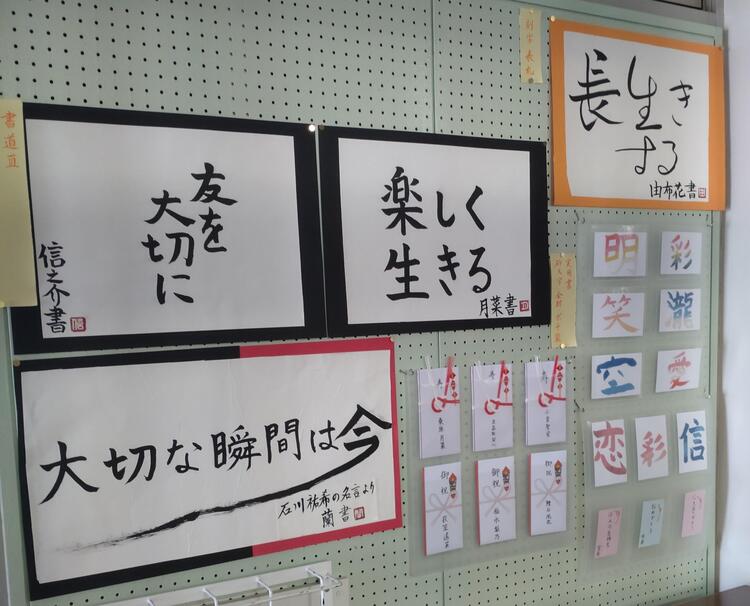 書道Ⅱ
友を
大切に
信之介書
楽しく
生きる
月菜書
長生き
する
由布花書
大切な瞬間は今
石川祐希の名言より
蘭書
明
彩
笑
瀧
空
愛
恋
彩
信
寿
寿
寿
御祝
御祝
御祝